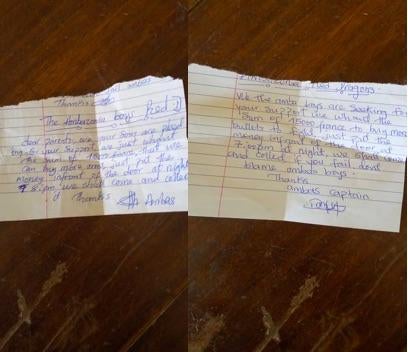 Thanks
The Ambazonia boys Red D
dear parents, we our sons are please
your support we just want
the sum of 15000 francs that we
can buy more just put the
money infront of the door at night
7.8.pm we shall come and collect
it Thanks Ambas
Red Dragons.
We the amba boys are seeking for
your support we want the
sum of 15000 francs to buy more
bullets to fight just put the
money infront of the door at
7.00pm at night, we shall come
and collect if you fail dont
blame ambas boys.
Thanks
ambas captain